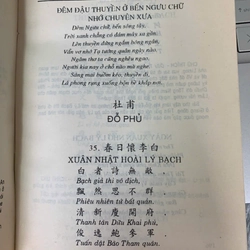 ĐÊM ĐẬU THUYỀN Ở BẾN NGƯU CHỬ
NHỚ CHUYỆN XƯA
Đêm Ngưu chử, bến sông tây,
Trời xanh chẳng có đám mây xa gần.
Lên thuyền đứng ngắm bóng ngân,
Vẩn vơ nhớ Tạ tướng quân ngày nào!
Ngâm thơ ta cũng nghêu ngao,
Người kia nay ở chỗ nào mà nghe.
Sáng mai buồm kéo thuyền đi,
Lá phong rụng xuống bộn bề khắp nơi.
杜甫
ĐỖ PHỦ
35. 春日懷李白
XUÂN NHẬT HOÀI LÝ BẠCH
白者詩無敵
Bạch giả thi vô địch,
飄然思不群
Phiêu nhiên tứ bất quần.
清新庾開府
Thanh tân Dữu Khai phủ,
俊逸鮑參軍
Tuấn dật Bảo Tham quân.